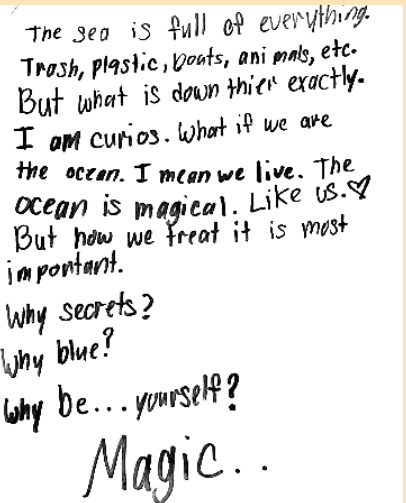 The sea is full of everything.
Trash, plastic, boats, animals, etc.
But what is down thier exactly.
I am curios. What if we are
the ocean. I mean we live. The
ocean is magical. Like us.♡
But how we treat it is most
important.
Why secrets?
Why blue?
Why be... yourself?
Magic..